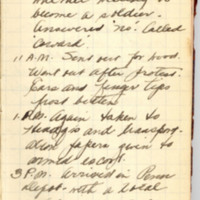 become a soldier.
Answered "No". Called
Coward.
11 A.M. Sent out for wood.
Went out after protest.
Ears and finger tips
frost bitten
1 P.M. Again taken to
Hendqrs and transport-
ation papers given to
armed escort.
3 P.M. Arrived in
Depot with a local